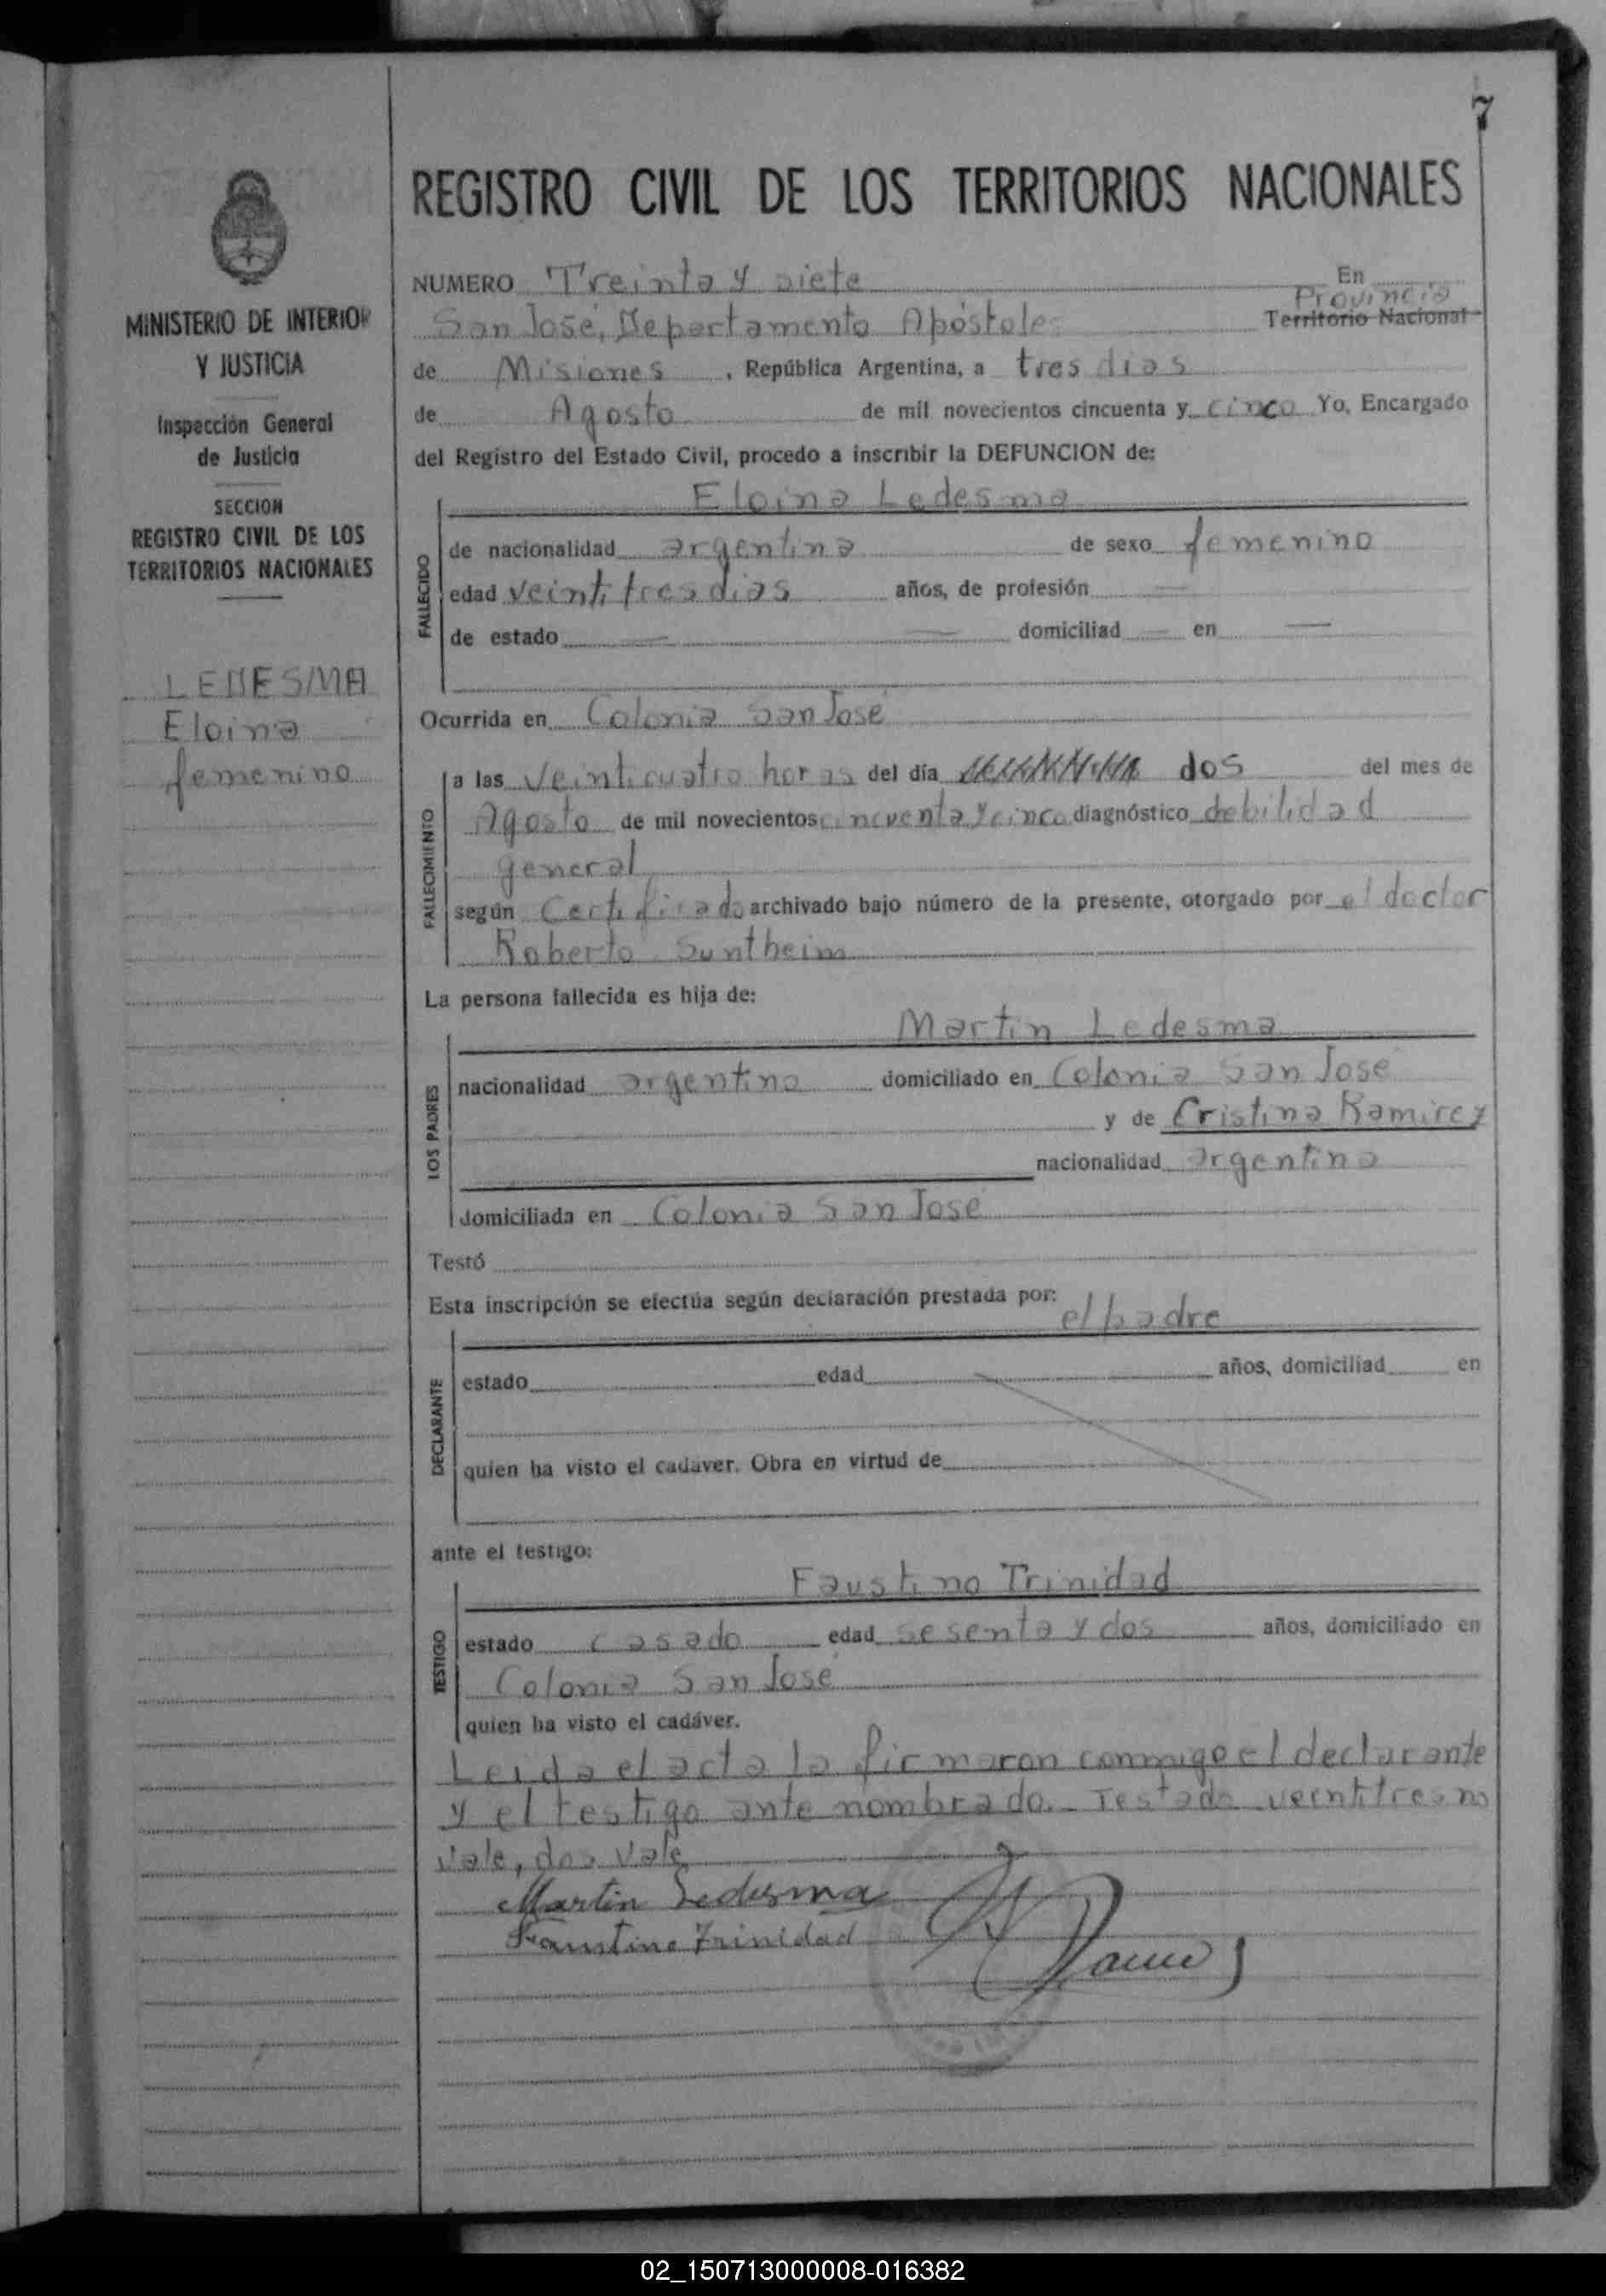 7
REGISTRO CIVIL DE LOS TERRITORIOS NACIONALES
MINISTERIO DE INTERIOR
Y JUSTICIA
Inspección General
de Justicia
SECCION
REGISTRO CIVIL DE LOS
TERRITORIOS NACIONALES
LEDESMA
Eloina
femenino
NUMERO Treinta y siete En
Provincia
San José, Departamento Apóstoles Territorio Nacional
de Misiones, República Argentina, a tres dias
de Agosto de mil novecientos cincuenta y cinco Yo, Encargado
del Registro del Estado Civil, procedo a inscribir la DEFUNCION de:
Eloina Ledesma
FALLECIDO
de nacionalidad argentina de sexo femenino
edad veintitres dias años, de profesión —
de estado — — domiciliad — en —
Ocurrida en Colonia San José
FALLECIMIENTO
a las veinticuatro horas del día dos del mes de
Agosto de mil novecientos cincuenta y cinco diagnóstico debilidad
general
según Certificado archivado bajo número de la presente, otorgado por el doctor
Roberto Suntheim
La persona fallecida es hija de:
Martin Ledesma
LOS PADRES
nacionalidad argentino domiciliado en Colonia San José
y de Cristina Ramirez
nacionalidad argentina
domiciliada en Colonia San José
Testó
Esta inscripción se efectúa según declaración prestada por:
el padre
DECLARANTE
estado edad años, domiciliad en
quien ha visto el cadáver. Obra en virtud de
ante el testigo:
Faustino Trinidad
TESTIGO
estado casado edad sesenta y dos años, domiciliado en
Colonia San José
quien ha visto el cadáver.
Leida el acta la firmaron conmigo el declarante
y el testigo ante nombrado. Testado veintitres no
vale, dos vale
Martin Ledesma
Faustino Trinidad
02_150713000008-016382